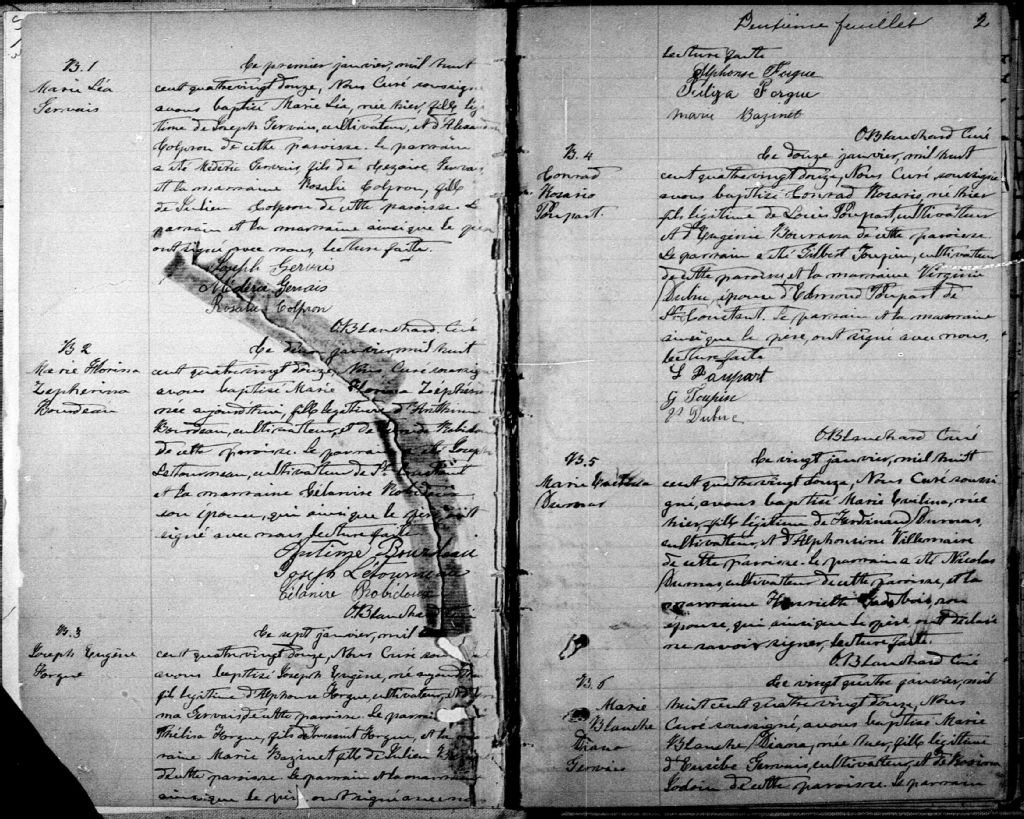 B.1
Marie Léa
Gervais
Le premier janvier, mil huit
cent quatrevingt douze, Nous Curé soussigné
avons baptisé Marie Léa, née hier, fille légi
time de Joseph Gervais, cultivateur, et d'
Colpron de cette paroisse. Le parrain
a été Médéric Gervais, fils de Gervais
et la marraine Rosalie Colpron, fille
de Julien Colpron de cette paroisse. Le
parrain et la marraine ainsi que le père
ont signé avec nous, lecture faite.
Joseph Gervais
Médéric Gervais
Rosalie Colpron
O. Blanchard Curé
B 2
Marie Florina
Zépherina
Bourdeau
Le deux janvier, mil huit
cent quatrevingt douze, Nous Curé soussigné
avons baptisé Marie Florina Zéphérina
née aujourd'hui, fille légitime d'Anthime
Bourdeau, cultivateur, et de Robidou
de cette paroisse. Le parrain a été Joseph
Letourneau, cultivateur de St. Constant
et la marraine Célanire Robidoux
son épouse, qui ainsi que le père ont
signé avec nous lecture faite
Antime Bourdeau
Joseph Létourneau
Célanire Robidoux
O. Blanchard
B.3
Joseph Eugène
Forgue
Le sept janvier, mil
cent quatrevingt douze, Nous Curé
avons baptisé Joseph Eugène, né aujourd'hui
fils légitime d'Alphonse Forgue, cultivateur, et
ma Gervais de cette paroisse. Le parrain
Forgue, fils de Toussaint Forgue, et la mar
raine Marie Bazinet fille de Julien
de cette paroisse. Le parrain et la marraine
ainsi que le père ont signé avec nous
Deuxième feuillet 2
lecture faite
Alphonse Forgue
Forgue
Marie Bazinet
O. Blanchard Curé
B. 4
Conrad
Rosario
Poupart.
Le douze janvier, mil huit
cent quatrevingt douze, Nous Curé, soussigné
avons baptisé Conrad Rosario, né hier
fils légitime de Louis Poupart, cultivateur
et d'Eugénie Bourassa de cette paroisse
Le parrain a été Gilbert Toupin, cultivateur
de cette paroisse, et la marraine Virginie
Dubuc, épouse d'Edmond Poupart de
St. Constant. Le parrain et la marraine
ainsi que le père, ont signé avec nous,
lecture faite
L Poupart
G Toupin
V Dubuc
O. Blanchard Curé
B.5
Marie
Dumas
Le vingt janvier, mil huit
cent quatrevingt douze, Nous Curé soussi
gné, avons baptisé Marie Evelina, née
hier, fille légitime de Ferdinand Dumas,
cultivateur, et d'Alphonsine Villemaire
de cette paroisse. Le parrain a été Nicolas
Dumas, cultivateur de cette paroisse, et la
marraine Henriette son
épouse, qui ainsi que le père ont déclaré
ne savoir signer, lecture faite.
O. Blanchard Curé
B. 6
Marie
Blanche
Diana
Gervais
Le vingt quatre janvier, mil
huit cent quatrevingt douze, Nous
Curé soussigné, avons baptisé Marie
Blanche Diana, née hier, fille légitime
d'Eusèbe Gervais, cultivateur, et de Rosanna
Godoin de cette paroisse. Le parrain